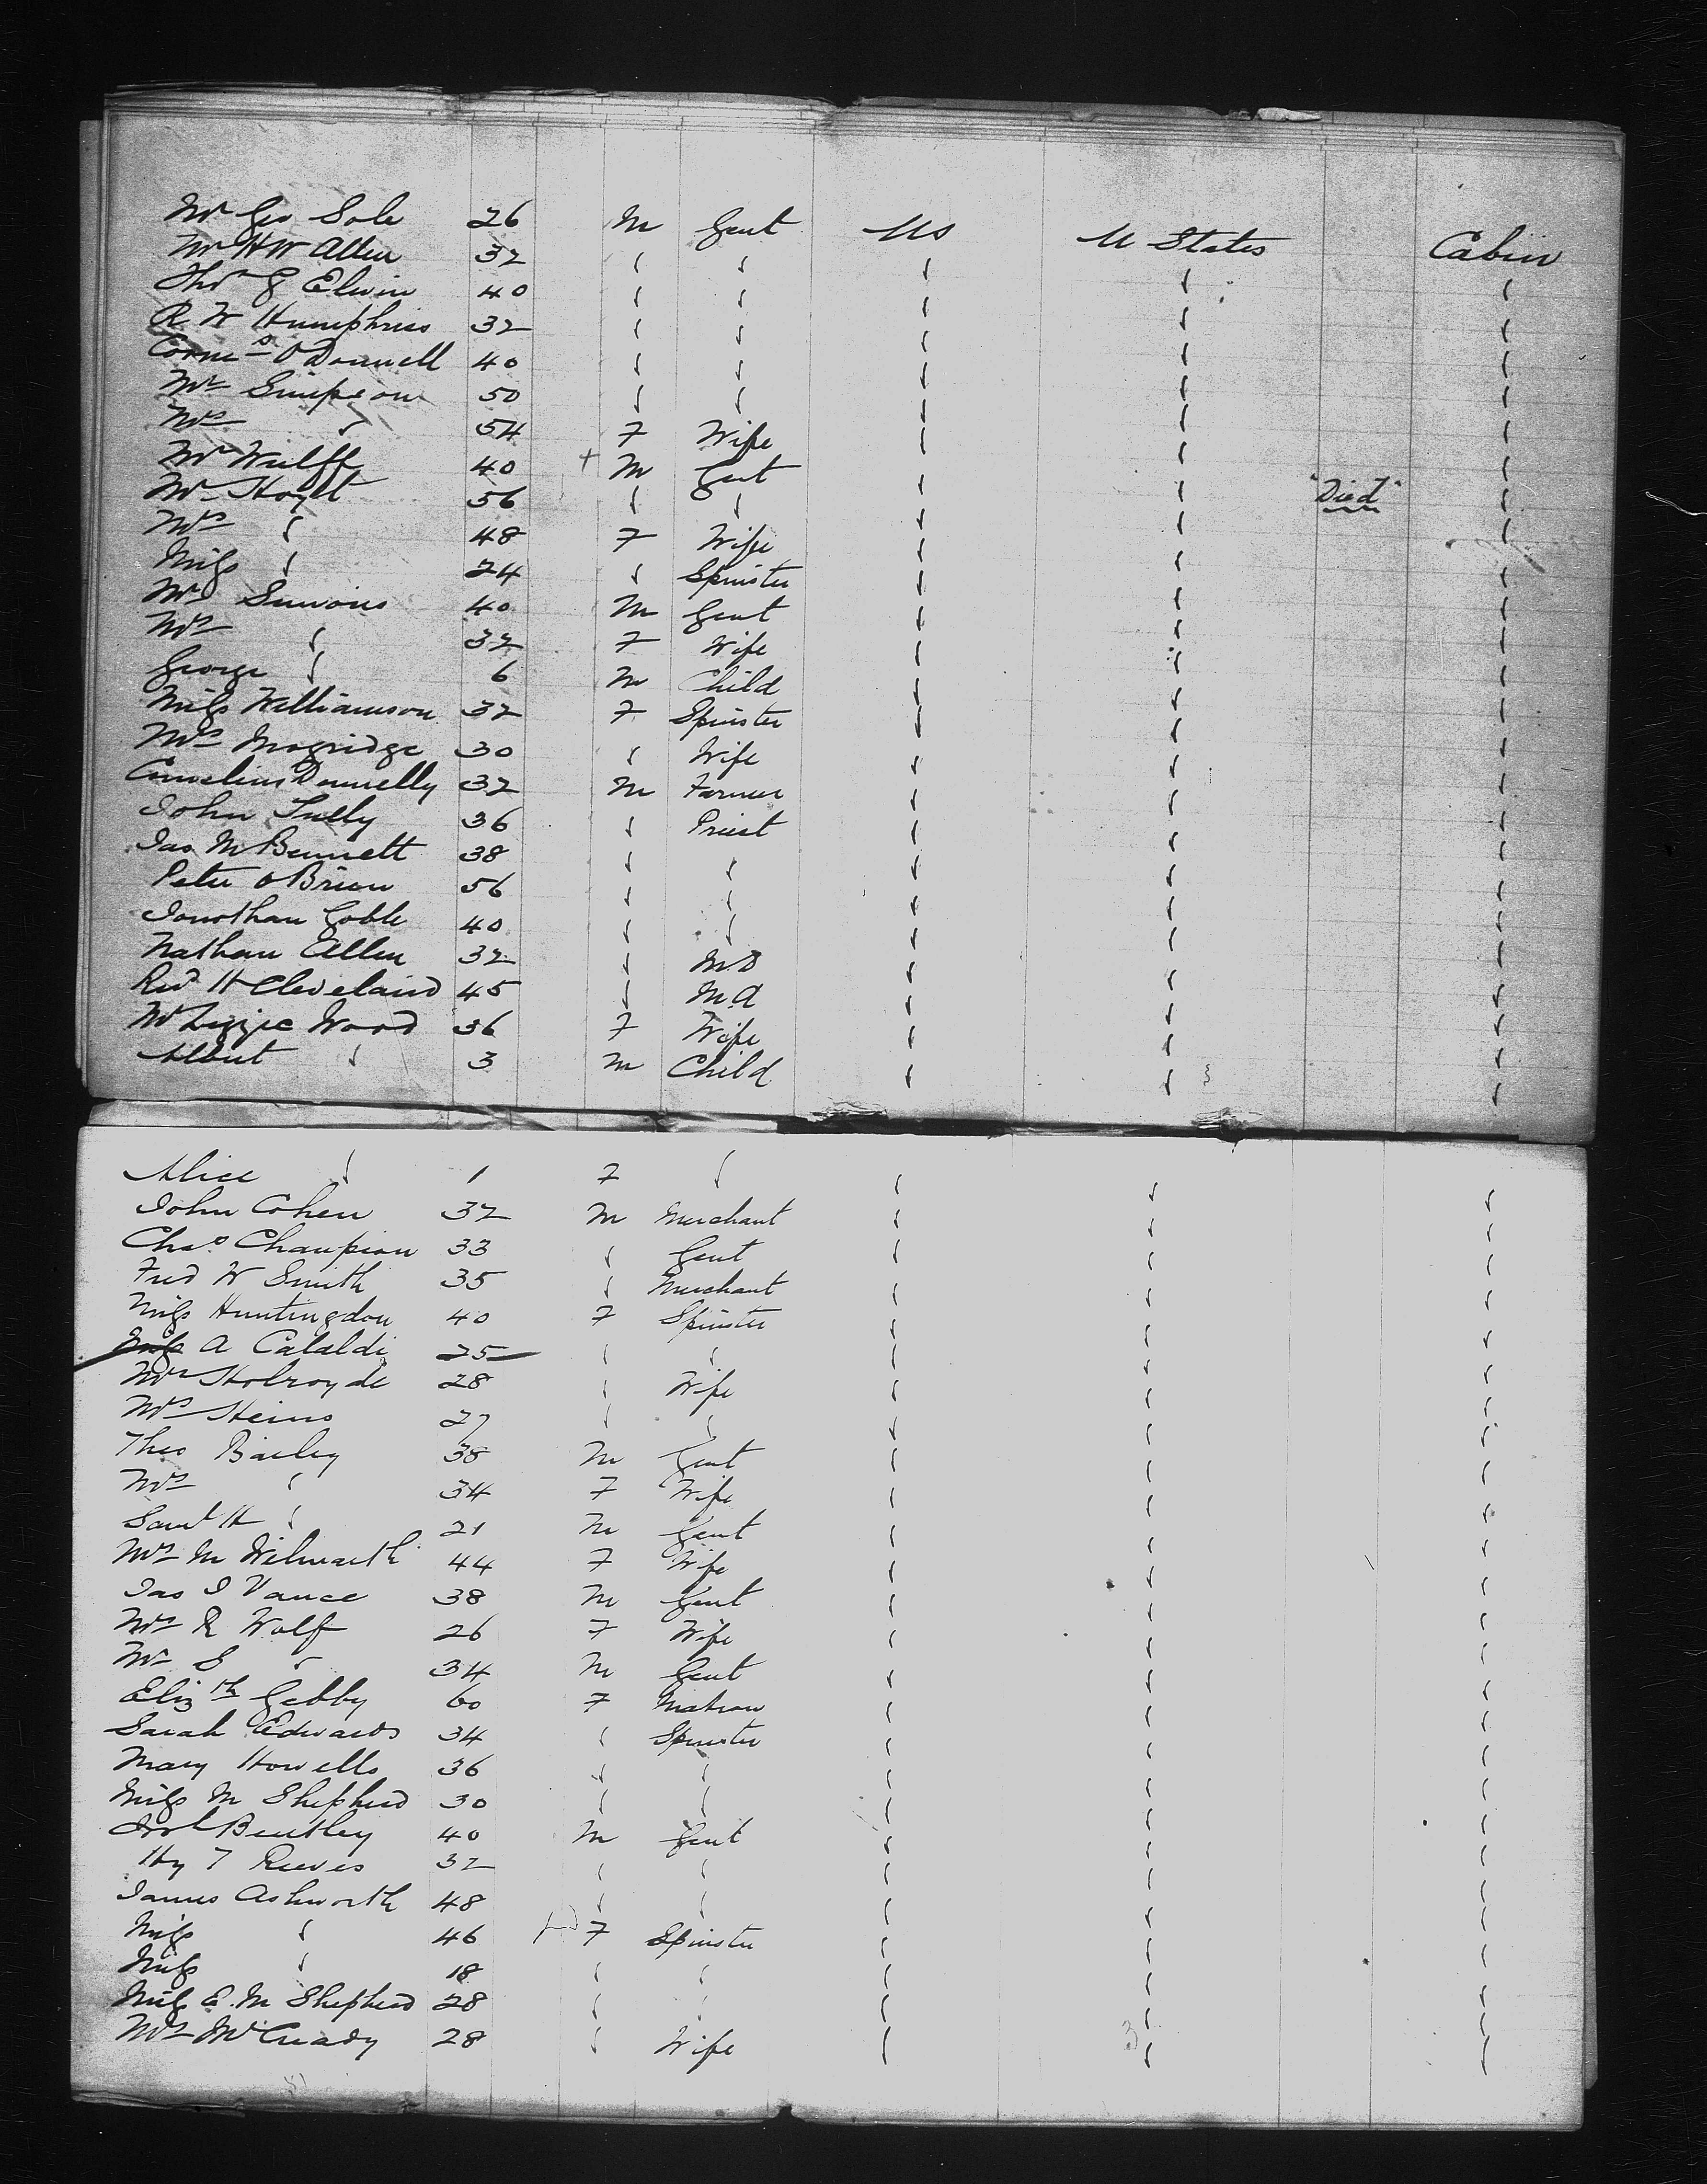 Mr Geo Sole 26 M Gent US U States Cabin
Mr H W Allen 32 " " " " "
Thos G Elwin 40 " " " " "
R W Humphries 32 " " " " "
Corns O'Donnell 40 " " " " "
Mr Simpson 50 " " " " "
Mrs " 54 F Wife " " "
Mr Wulff 40 + M Gent " " "
Mr Hoyt 56 " " " " "Died" "
Mrs " 48 F Wife " " "
Miss " 24 " Spinster " " "
Mr Simons 40 M Gent " " "
Mrs " 32 F Wife " " "
George " 6 M Child " " "
Miss Williamson 32 F Spinster " " "
Mrs Mogridge 30 " Wife " " "
Cornelius Donnelly 32 M Farmer " " "
John Tully 36 " Priest " " "
Jas M Bennett 38 " " " " "
Peter O Brien 56 " " " " "
Jonathan Goble 40 " " " " "
Nathan Allen 32 " M.D " " "
Revd H Cleveland 45 " M.A " " "
Mrs Lizzie Wood 36 F Wife " " "
Albert " 3 M Child " " "
Alice " 1 F " " " "
John Cohen 32 M Merchant " " "
Chas. Champion 33 " Gent " " "
Fred W Smith 35 " Merchant " " "
Miss Huntingdon 40 F Spinster " " "
Miss A Cataldi 25 " " " " "
Mrs Holroyde 28 " Wife " " "
Mrs Heins 27 " " " " "
Theo Bailey 38 M Gent " " "
Mrs " 34 F Wife " " "
Saml H " 21 M Gent " " "
Mrs M Wilmarth 44 F Wife " " "
Jas I Vance 38 M Gent " " "
Mrs R Wolf 26 F Wife " " "
Mr S " 34 M Gent " " "
Elizth Gebby 60 F Matron " " "
Sarah Edwards 34 " Spinster " " "
Mary Howells 36 " " " " "
Miss M Shepherd 30 " " " " "
Bentley 40 M Gent " " "
Hy T Reeves 32 " " " " "
James Ashworth 48 " " " " "
Miss " 46 F Spinster " " "
Miss " 18 " " " " "
Miss E. M Shepherd 28 " " " " "
Mrs McCready 28 " Wife " " "